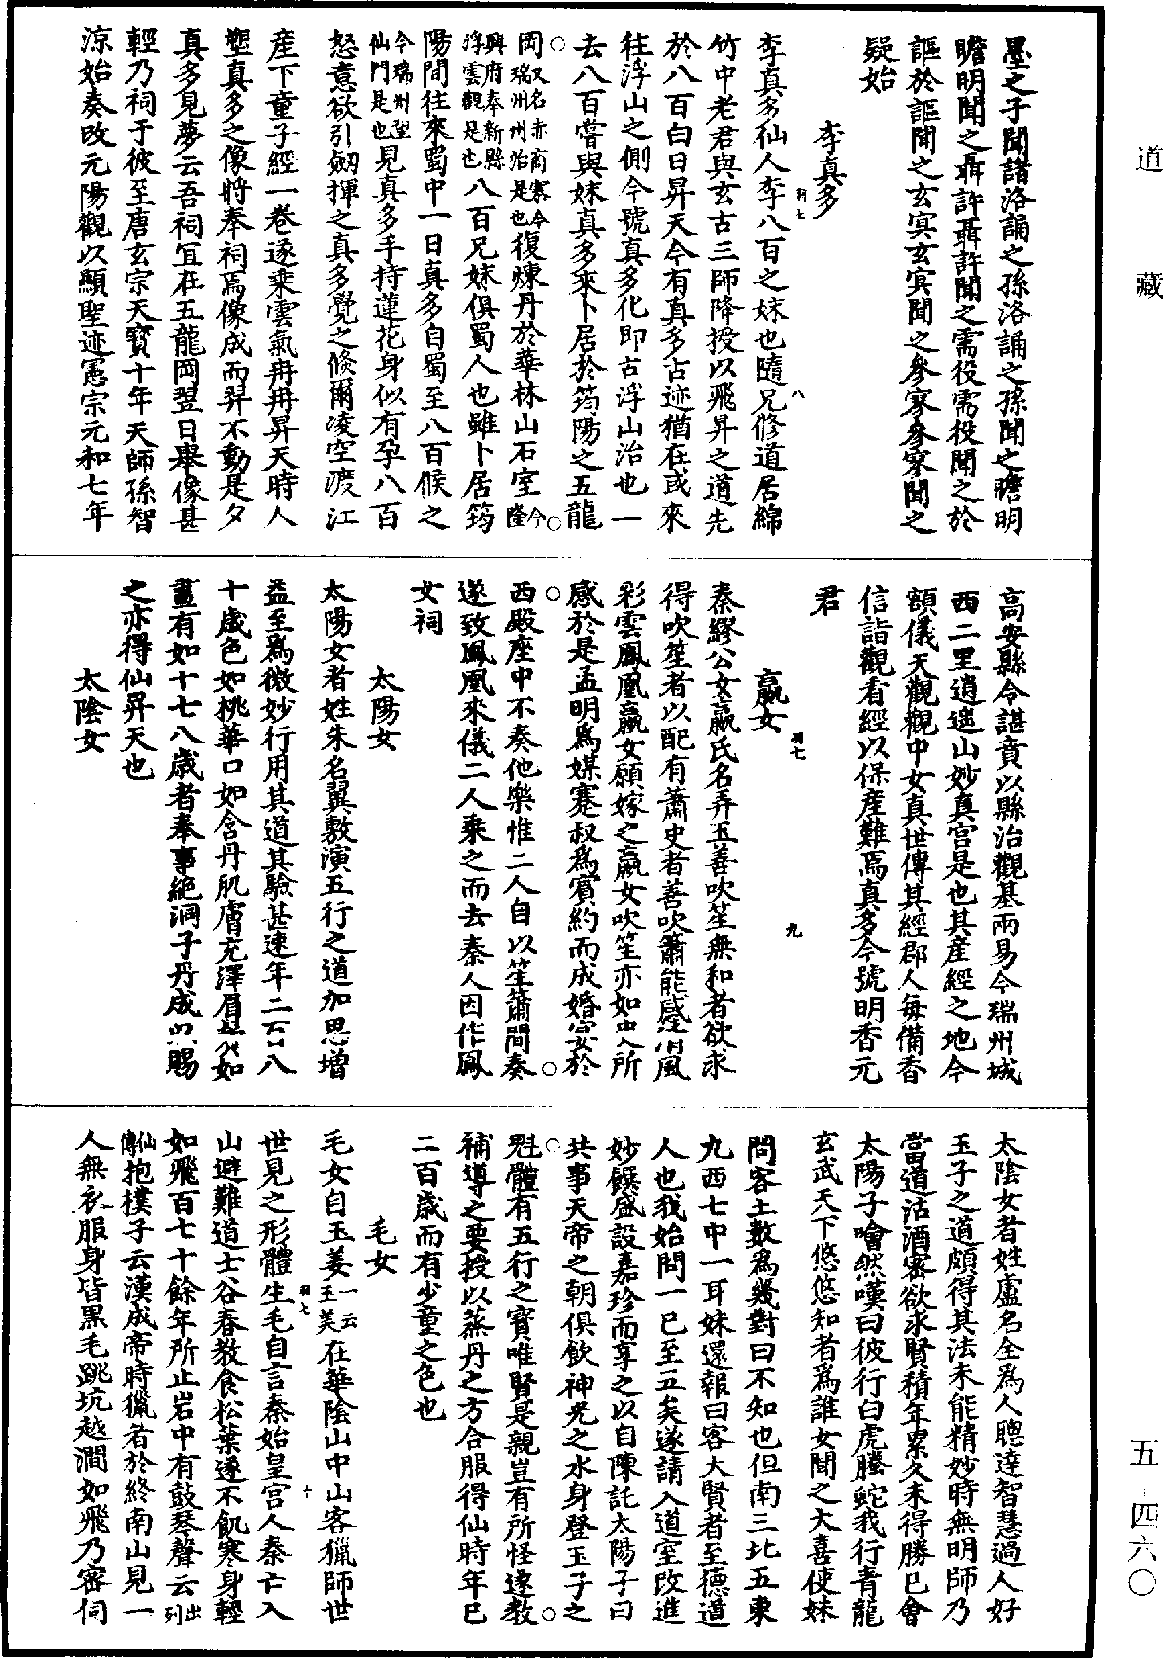 道藏
五 四六〇
墨之子聞諸洛誦之孫洛誦之孫聞之瞻明
瞻明聞之聶許聶許聞之需役需役聞之於
謳於謳聞之玄冥玄冥聞之參寥參寥聞之
疑始
李真多
李真多仙人李八百之妹也隨兄修道居綿
竹中老君與玄古三師降授以飛昇之道先
於八百白日昇天今有真多古迹猶在或來
往浮山之側今號真多化即古浮山治也一
去八百嘗與妹真多來卜居於筠陽之五龍
岡又名赤商寨今瑞州州治是也復煉丹於華林山石室今隆
興府奉新縣浮雲觀是也八百兄妹俱蜀人也雖卜居筠
陽間往來蜀中一日真多自蜀至八百候之
今瑞州望仙門是也見真多手持蓮花身似有孕八百
怒意欲引劒揮之真多覺之倏爾凌空渡江
產下童子經一卷遂乘雲氣冉冉昇天時人
塑真多之像將奉祠焉像成而舁不動是夕
真多見夢云吾祠宜在五龍岡翌日舉像甚
輕乃祠于彼至唐玄宗天寶十年天師孫智
涼始奏改元陽觀以顯聖迹憲宗元和七年
高安縣令諶賁以縣治觀基兩易今瑞州城
西二里逍遙山妙真宮是也其產經之地今
額儀天觀觀中女真世傳其經郡人每備香
信詣觀看經以保產難焉真多今號明香元
君
嬴女
秦繆公女嬴氏名弄玉善吹笙無和者欲求
得吹笙者以配有蕭史者善吹簫能感清風
彩雲鳳凰嬴女願嫁之嬴女吹笙亦如史所
感於是孟明為媒蹇叔為賓約而成婚宴於
西殿座中不奏他樂惟二人自以笙簫間奏
遂致鳳凰來儀二人乘之而去秦人因作鳳
女祠
太陽女
太陽女者姓朱名翼敷演五行之道加思增
益至為微妙行用其道其驗甚速年二百八
十歲色如桃華口如含丹肌膚充澤眉鬢如
畫有如十七八歲者奉事絕洞子丹成以賜
之亦得仙昇天也
太陰女
太陰女者姓盧名全為人聰達智慧過人好
玉子之道頗得其法未能精妙時無明師乃
當道沽酒密欲求賢積年累久未得勝已會
太陽子喻然嘆曰彼行白虎螣蛇我行青龍
玄武天下悠悠知者為誰女聞之大喜使妹
問客土數為幾對曰不知也但南三北五東
九西七中一耳妹還報曰客大賢者至德道
人也我始問一已至五矣遂請入道室改進
妙饌盛設嘉珍而享之以自陳託太陽子曰
共事天帝之朝俱飲神光之水身登玉子之
魁體有五行之寶唯賢是親豈有所怪遂教
補導之要授以蒸丹之方合服得仙時年已
二百歲而有少童之色也
毛女
毛女自玉姜一云玉美在華陰山中山客獵師世
世見之形體生毛自言秦始皇宮人秦亡入
山避難道士谷春教食松葉遂不飢寒身輕
如飛百七十餘年所止岩中有鼓琴聲云出列
仙傳抱樸子云漢成帝時獵者於終南山見一
人無衣服身皆黑毛跳坑越澗如飛乃密伺